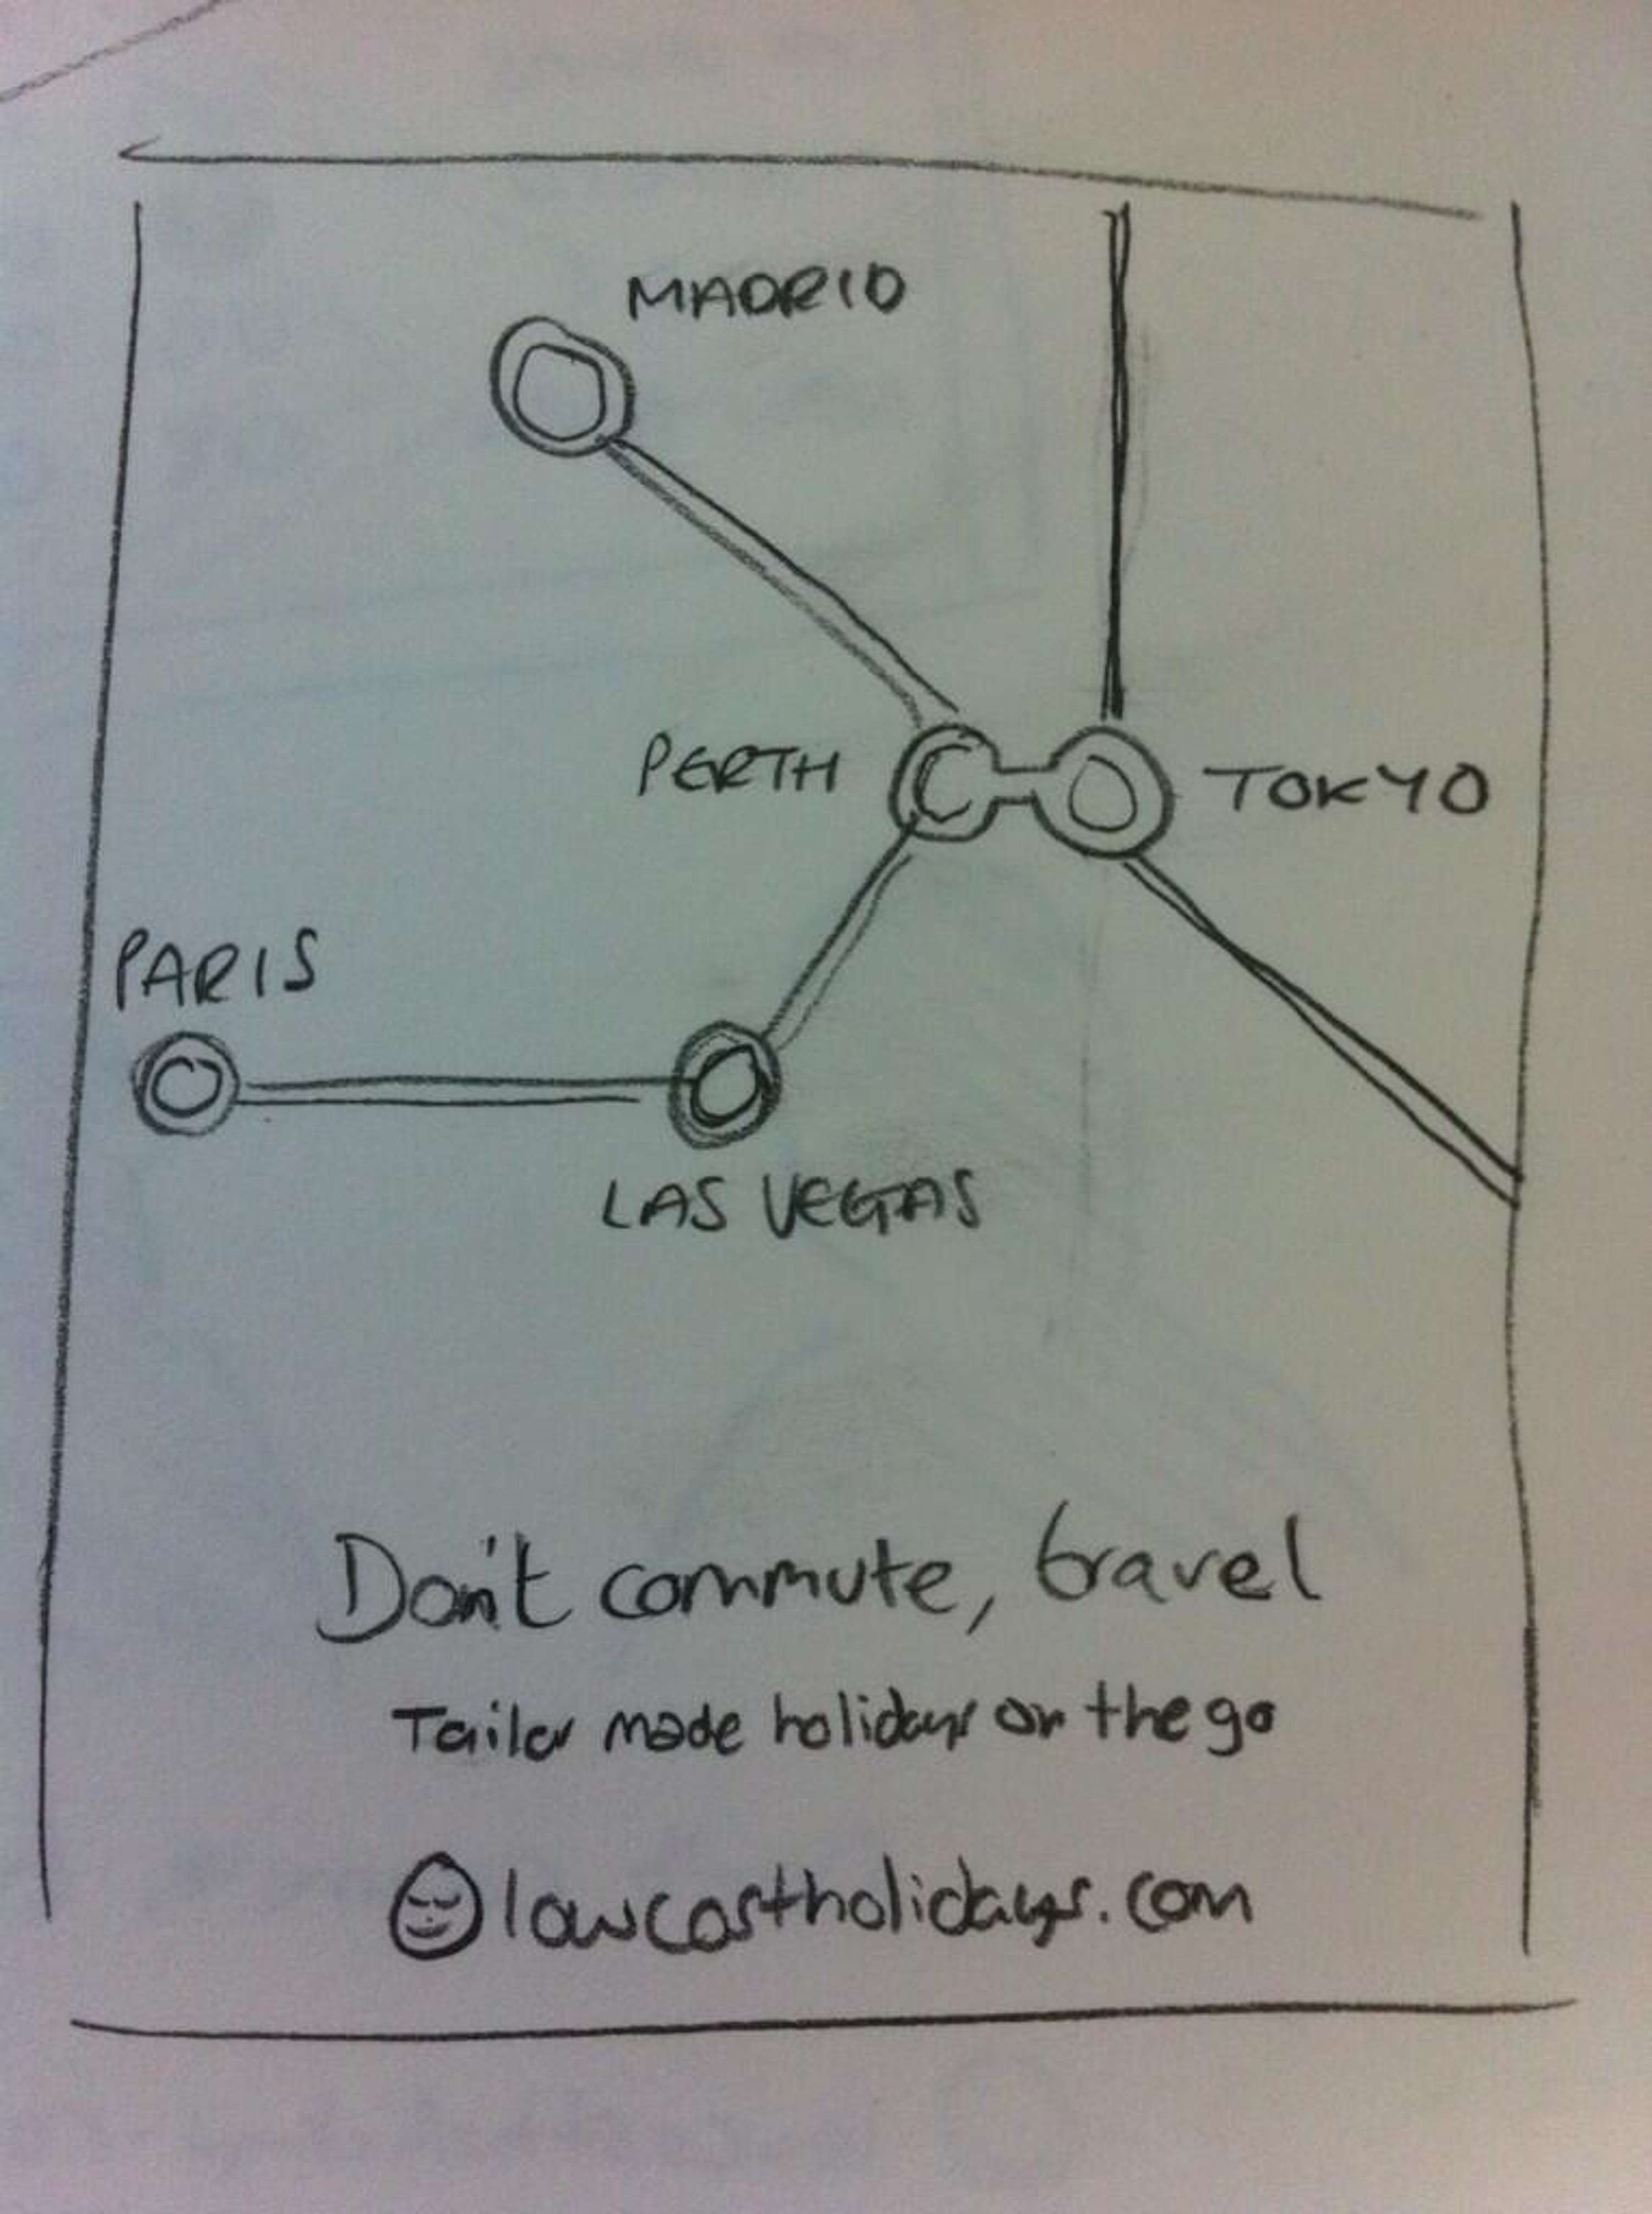 MADRID
PERTH
TOKYO
PARIS
LAS VEGAS
Don't commute, travel
Tailor made holidays on the go
lowcostholidays.com